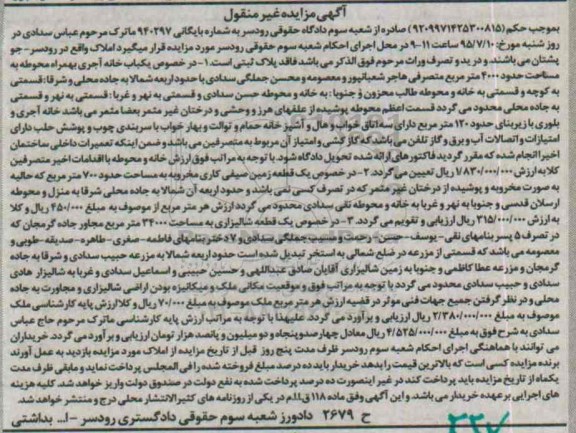 آگهی مزایده غیر منقول
بموجب حکم (۹۲۰۹۹۷۱۴۲۵۳۰۰۸۱۵) صادره از شعبه سوم دادگاه حقوقی رودسر به شماره بایگانی ۹۴۰۲۹۷ ماترک مرحوم عباس سدادی در
روز شنبه مورخ: ۹۵/۷/۱۰ ساعت ۱۱-۹ در محل اجرای احکام شعبه سوم حقوقی رودسر مورد مزایده قرار میگیرد املاک واقع در رودسر - جو
پشتان می باشند. و در ید و تصرف وراث مرحوم فوق الذکر می باشد فاقد پلاک ثبتی است. ۱- در خصوص یکباب خانه آجری بهمراه محوطه به
مساحت حدود ۴۰۰۰ متر مربع متصرفی هاجر شعبانپور و معصومه و محسن جملگی سدادی با حدود اربعه شمالا به جاده محلی و شرقا: قسمتی
به کوچه و قسمتی به خانه و محوطه طالب مخزون و جنوبا: به خانه و محوطه حسن سدادی و قسمتی به نهر و غربا: قسمتی به نهر و قسمتی
به جاده محلی محدود می گردد قسمت اعظم محوطه پوشیده از علفهای هرز و وحشی و درختان غیر مثمر بعضا مثمر می باشد خانه آجری و
بلوری با زیربنای حدود ۱۲۰ متر مربع دارای سه اتاق خواب و هال و آشپز خانه حمام و توالت و بهار خواب با سربندی چوب و پوشش حلب دارای
امتیازات و اتصالات آب و برق و گاز تلفن می باشد که گاز کشی و امتیاز آن مربوط به متصرفین می باشد و ضمن اینکه تعمیرات داخلی ساختمان
اخیرا انجام شده که مقرر گردید فاکتورهای ارائه شده تحویل دادگاه شود. با توجه به مراتب فوق ارزش خانه و محوطه با اقدامات اخیر متصرفین
کلا به ارزش ۱/۸۳۰/۰۰۰/۰۰۰ ریال تعیین می گردد. ۲- در خصوص یک قطعه زمین صیفی کاری مخروبه به مساحت حدود ۷۰۰ متر مربع که حالیه
به صورت مخروبه و پوشیده از درختان غیر مثمر که در تصرف کسی نمی باشد و حدود اربعه آن شمالا به جاده محلی شرقا به منزل و محوطه
ارسلان قدسی و جنوبا به نهر و غربا به خانه و محوطه تقی سدادی محدود می گردد ارزش هر متر مربع از موصوف به مبلغ ۴۵۰/۰۰۰ ریال و کلا
به ارزش ۳۱۵/۰۰۰/۰۰۰ ریال ارزیابی و تقویم می گردد. ۳- در خصوص یک قطعه شالیزاری به مساحت ۳۴۰۰۰ متر مربع مجاور جاده گرمجان که
در تصرف ۵ پسر بنامهای نقی - یوسف - حسن - رحمت و مسیب جملگی سدادی و ۷ دختر بنامهای فاطمه - صغری - طاهره - صدیقه - طوبی و
معصومه می باشد که قسمتی از مزرعه در ضلع شمالی به استخر تبدیل شده است حدود اربعه شمالا به مزرعه حبیب سدادی و شرقا به جاده
گرمجان و مزرعه عطا کاظمی و جنوبا به زمین شالیزاری آقایان صادق عبداللهی و حسین حبیبی و اسماعیل سدادی و غربا به شالیزار هادی
سدادی و حبیب سدادی محدود می گردد با توجه به مراتب فوق و موقعیت مکانی ملک و میکانیزه بودن اراضی شالیزاری و مجاورت به جاده
محلی و در نظر گرفتن جمیع جهات فنی موثر در قضیه ارزش هر متر مربع ملک موصوف به مبلغ ۷۰/۰۰۰ ریال و کلا ارزش پایه کارشناسی ملک
موصوف به مبلغ ۲/۳۸۰/۰۰۰/۰۰۰ ریال ارزیابی و برآورد می گردد. علیهذا با توجه به مراتب ارزش پایه کارشناسی ماترک مرحوم حاج عباس
سدادی به شرح فوق به مبلغ ۴/۵۲۵/۰۰۰/۰۰۰ ریال معادل چهارصد و پنجاه و دو میلیون و پانصد هزار تومان ارزیابی و برآورد می گردد. خریداران
می توانند با هماهنگی اجرای احکام شعبه سوم رودسر ظرف مدت پنج روز قبل از تاریخ مزایده از املاک مورد مزایده بازدید به عمل آورند
برنده مزایده کسی است که بالاترین قیمت را بدهد خریدار باید ده درصد مبلغ فروخته شده را فی المجلس پرداخت نماید و مابقی ظرف مدت
یکماه از تاریخ مزایده باید پرداخت کند در غیر اینصورت ده درصد پرداخت شده به نفع دولت در صندوق دولت واریز خواهد شد. کلیه هزینه
های اجرایی بر عهده خریدار می باشد. و این آگهی وفق ماده ۱۱۸ ق.ا.م در یکی از روزنامه های کثیرالانتشار محلی درج و منتشر خواهد شد.
ح ۲۶۷۹ دادورز شعبه سوم حقوقی دادگستری رودسر - ا... بداشتی
۲۲۷